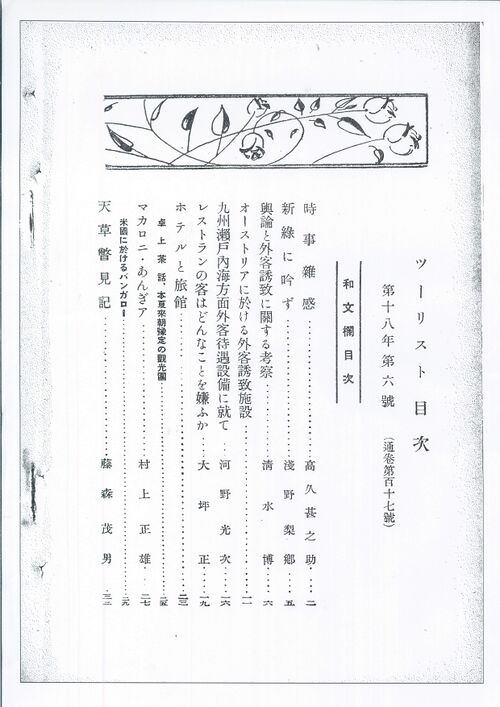 ツーリスト目次
第十八年第六號
(通卷第百十七號)
和文欄目次
時事雜感……高久甚之助…二
新綠に吟ず……淺野梨鄕…五
輿論と外客誘致に關する考察……淸水博…六
オーストリアに於ける外客誘致施設……一一
九州瀨戶內海方面外客待遇設備に就て……河野光次…一六
レストランの客はどんなことを嫌ふか……大坪正…一九
ホテルと旅館……二三
卓上茶話、本夏來朝豫定の觀光團……二五
マカロニ・あんぎア……村上正雄…二七
米國に於けるバンガロー……二九
天草瞥見記……藤森茂男…三二